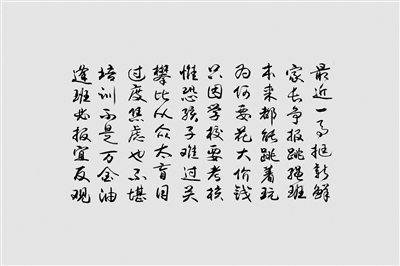 最近一事挺新鲜
家长争报跳绳班
本来都能跳着玩
为何要花大价钱
只因学校要考核
惟恐孩子难过关
攀比从众太盲目
过度焦虑也不堪
培训不是万金油
逢班必报宜反观